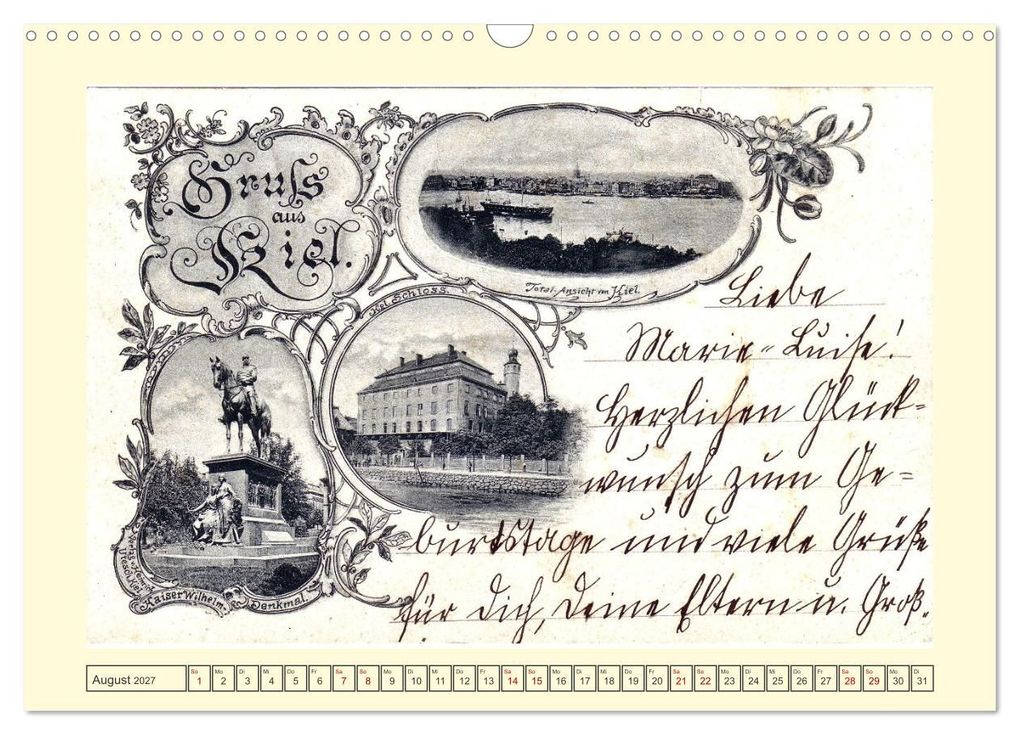 Gruss
aus
Kiel.
Total-Ansicht von Kiel.
Kgl. Schloss.
Kaiser Wilhelm-
Denkmal.
Liebe
Marie-Luise!
Herzlichen Glück=
wunsch zum Ge=
burtstage und viele Grüße
für Dich, Deine Eltern u. Groß.
August 2027
So Mo Di Mi Do Fr Sa So Mo Di Mi Do Fr Sa So Mo Di Mi Do Fr Sa So Mo Di Mi Do Fr Sa So Mo Di
1 2 3 4 5 6 7 8 9 10 11 12 13 14 15 16 17 18 19 20 21 22 23 24 25 26 27 28 29 30 31